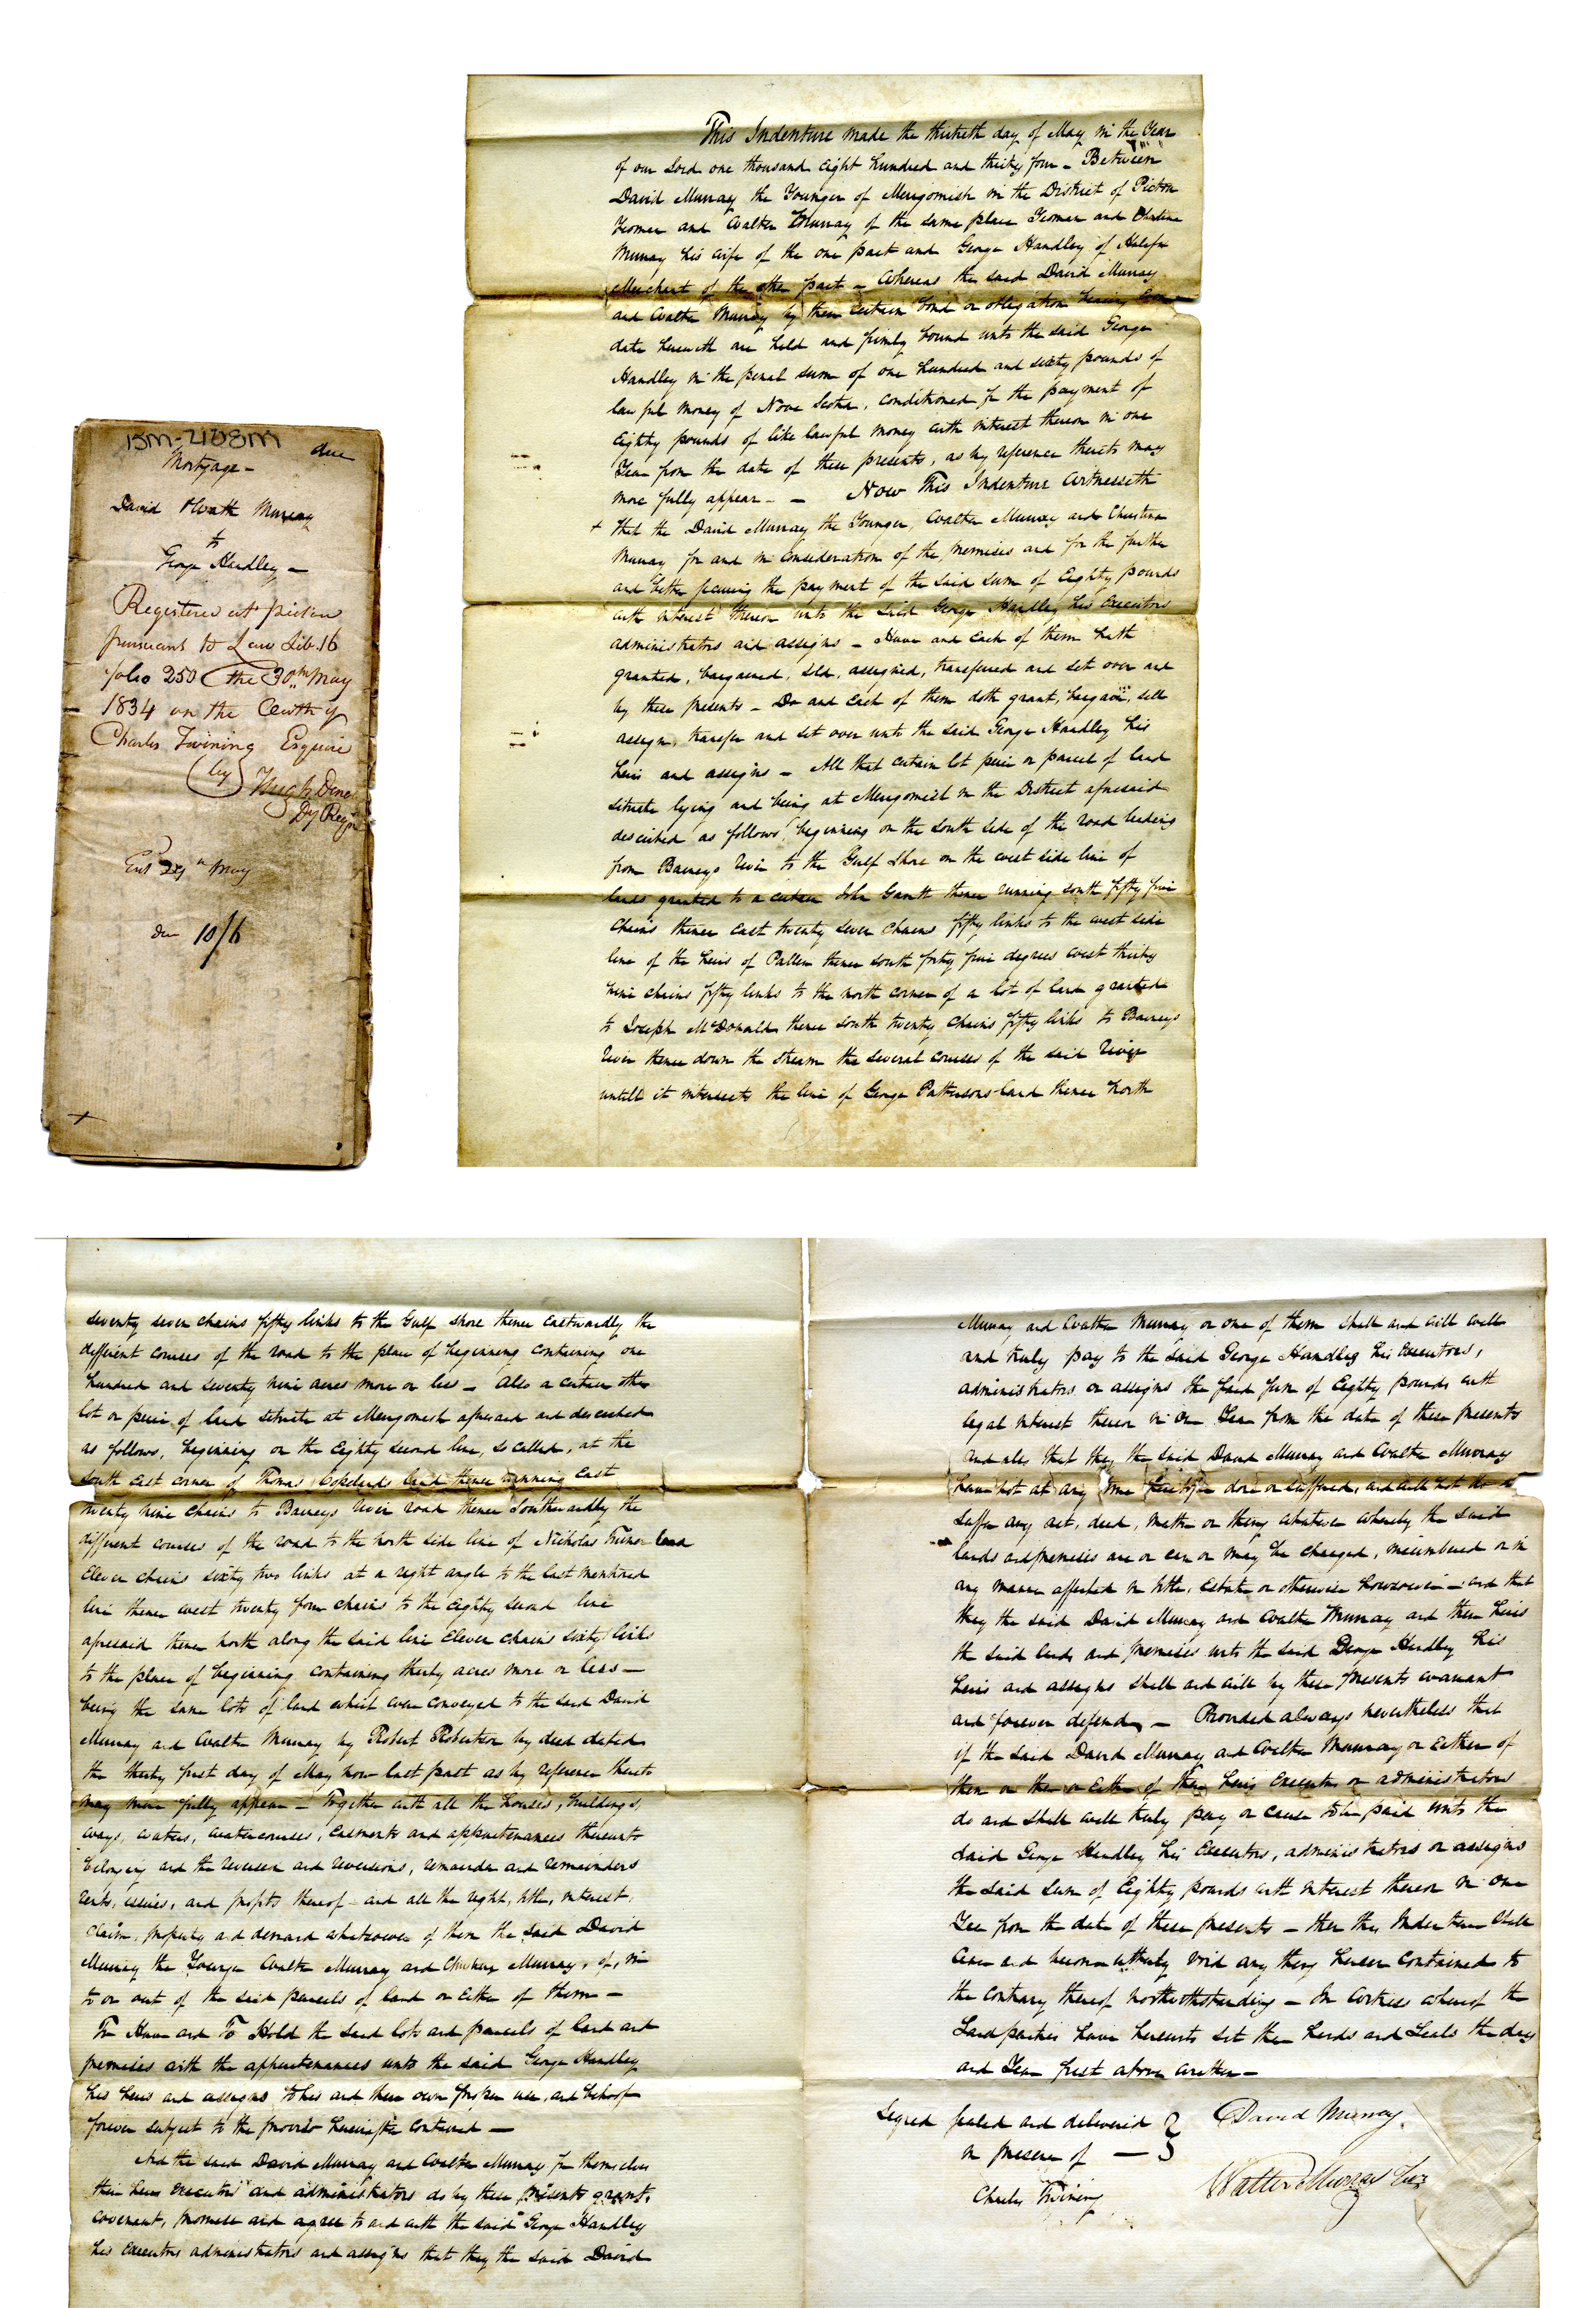 13M-2188M
due
Mortgage –
David & Walt Murray
to
George Handley –
Registered at Pictou
pursuant to Law Lib. 16
folio 250 the 30th May
1834 on the Oath of
Charles Twining Esquire
(by) Hugh Deno
Dy Regr
Ent 29th May
due 10/6
This Indenture made the thirtieth day of May in the Year
of our Lord one thousand eight hundred and thirty four – Between
David Murray the Younger of Merigomish in the District of Pictou
Yeoman and Walter Murray of the same place Yeoman and Christina
Murray his wife of the one part and George Handley of Halifax
Merchant of the other part – Whereas the said David Murray
and Walter Murray by their certain bond or obligation bearing even
date herewith are held and firmly bound unto the said George
Handley in the penal sum of one hundred and sixty pounds of
lawful money of Nova Scotia, conditioned for the payment of
Eighty pounds of like lawful money with interest thereon in one
Year from the date of these presents, as by reference thereto may
more fully appear – – Now This Indenture Witnesseth
+ that the David Murray the Younger, Walter Murray and Christina
Murray for and in consideration of the premises and for the further
and better securing the payment of the said sum of Eighty pounds
with interest thereon unto the said George Handley his Executors
administrators and assigns – Have and each of them hath
granted, bargained, sold, assigned, transferred and set over and
by these presents – Do and Each of them doth grant, bargain, sell
assign, transfer and set over unto the said George Handley his
heirs and assigns – All that certain lot piece or parcel of land
situate lying and being at Merigomish in the District aforesaid
described as follows beginning on the south side of the road leading
from Barneys River to the Gulf Shore on the west side line of
lands granted to a certain John Garrett thence running south fifty five
chains thence east twenty seven chains fifty links to the west side
line of the heirs of Pallen thence south forty five degrees west thirty
nine chains fifty links to the north corner of a lot of land granted
to Joseph McDonald thence south twenty chains fifty links to Barneys
River thence down the stream the several courses of the said River
untill it intersects the line of George Pattersons land thence North
seventy seven chains fifty links to the Gulf Shore thence Eastwardly the
different courses of the road to the place of beginning containing one
hundred and seventy nine acres more or less – Also a certain other
lot or piece of land situate at Merigomish aforesaid and described
as follows, beginning on the Eighty second line, so called, at the
south East corner of Thomas Copelands land thence running East
twenty nine chains to Barneys River road thence Southwardly the
different courses of the road to the north side line of Nicholas land
Eleven chains sixty two links at a right angle to the last mentioned
line thence west twenty four chains to the Eighty second line
aforesaid thence north along the said line Eleven chains sixty links
to the place of beginning containing thirty acres more or less –
being the same lots of land which were conveyed to the said David
Murray and Walter Murray by Robert Robertson by deed dated
the thirty first day of May now last past as by reference thereto
may more fully appear – Together with all the houses, buildings,
ways, waters, watercourses, Easements and appurtenances thereunto
belonging and the reversion and reversions, remainder and remainders
rents, issues, and profits thereof and all the right, title, interest,
claim, property and demand whatsoever of them the said David
Murray the Younger Walter Murray and Christina Murray, of, in
to or out of the said parcels of land or Either of them –
To Have and To Hold the said lots and parcels of land and
premises with the appurtenances unto the said George Handley
his heirs and assigns to his and their own proper use, and behoof
forever subject to the proviso hereinafter contained –
And the said David Murray and Walter Murray for themselves
their heirs Executors and administrators do by these presents grant,
covenant, promise and agree to and with the said George Handley
his Executors administrators and assigns that they the said David
Murray and Walter Murray or one of them shall and will well
and truly pay to the said George Handley his Executors,
administrators or assigns the said sum of Eighty pounds with
legal interest thereon in one Year from the date of these presents
And also that they the said David Murray and Walter Murray
have not at any time heretofore done or suffered, and will not do
suffer any act, deed, matter or thing whatever whereby the said
lands and premises are or can or may be charged, incumbered or in
any manner affected in title, Estate or otherwise howsoever – and that
they the said David Murray and Walter Murray and their heirs
the said lands and premises unto the said George Handley his
heirs and assigns shall and will by these presents warrant
and forever defend – Provided always nevertheless that
if the said David Murray and Walter Murray or Either of
them or their or Either of their heirs Executors or administrators
do and shall well truly pay or cause to be paid unto the
said George Handley his Executors, administrators or assigns
the said sum of Eighty pounds with interest thereon in one
Year from the date of these presents – then this Indenture shall
cease and become utterly void any thing herein contained to
the contrary thereof notwithstanding – In Witness whereof the
said parties have hereunto set their hands and Seals the day
and Year first above written –
Signed sealed and delivered
in presence of –
Charles Twining
David Murray.
Walter Murray